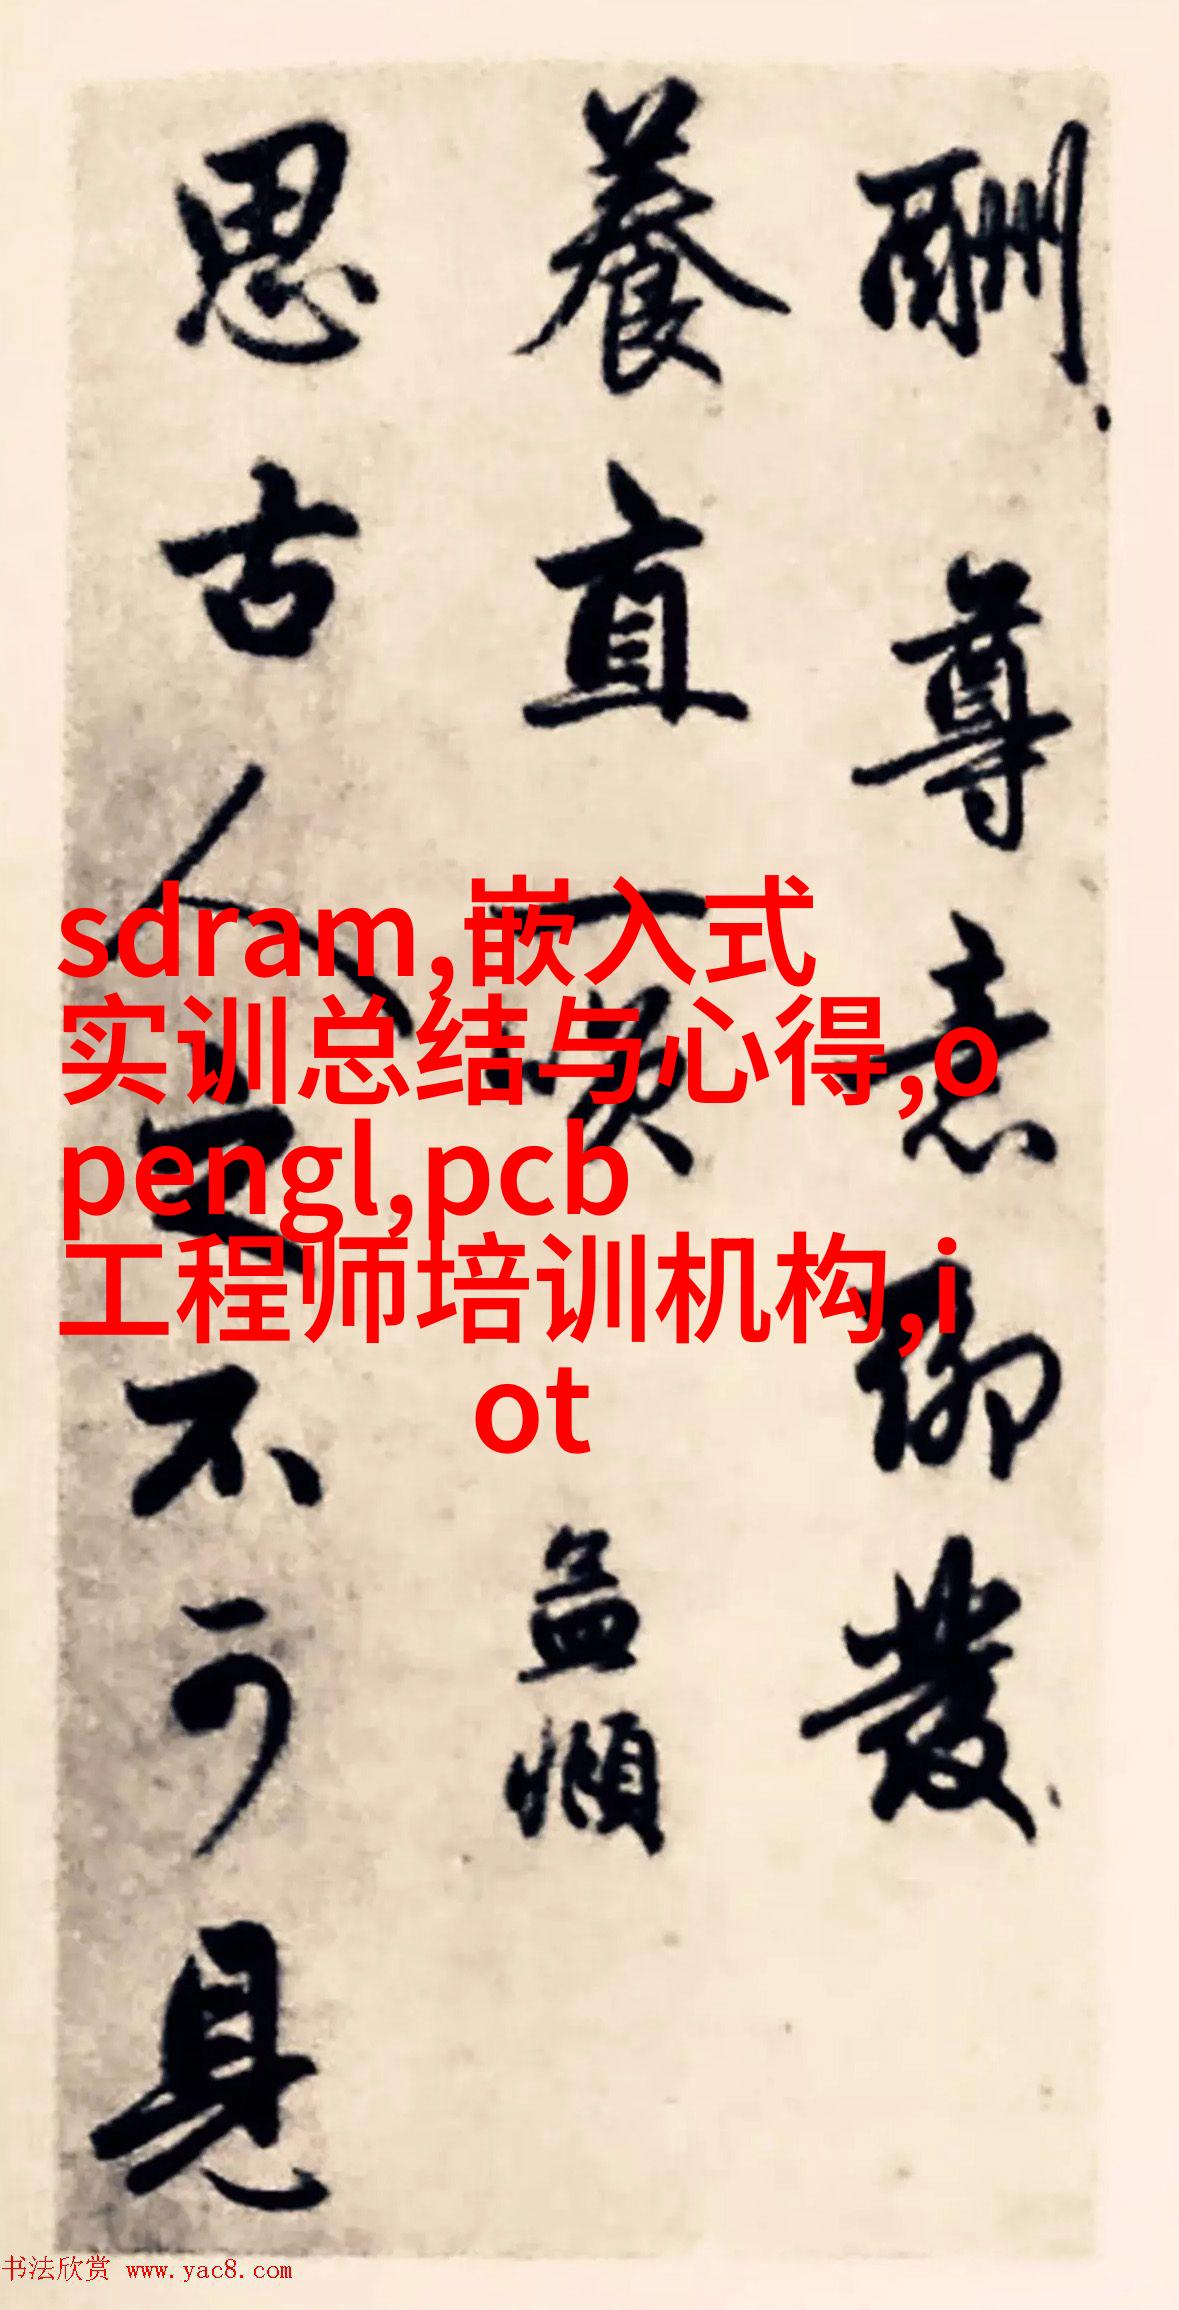 酬尊意聊發
養直一笑 孟頫
思古人不可見
sdram,嵌入式
实训总结与心得,o
pengl,pcb
工程师培训机构,i
ot
书法欣赏 www.yac8.com